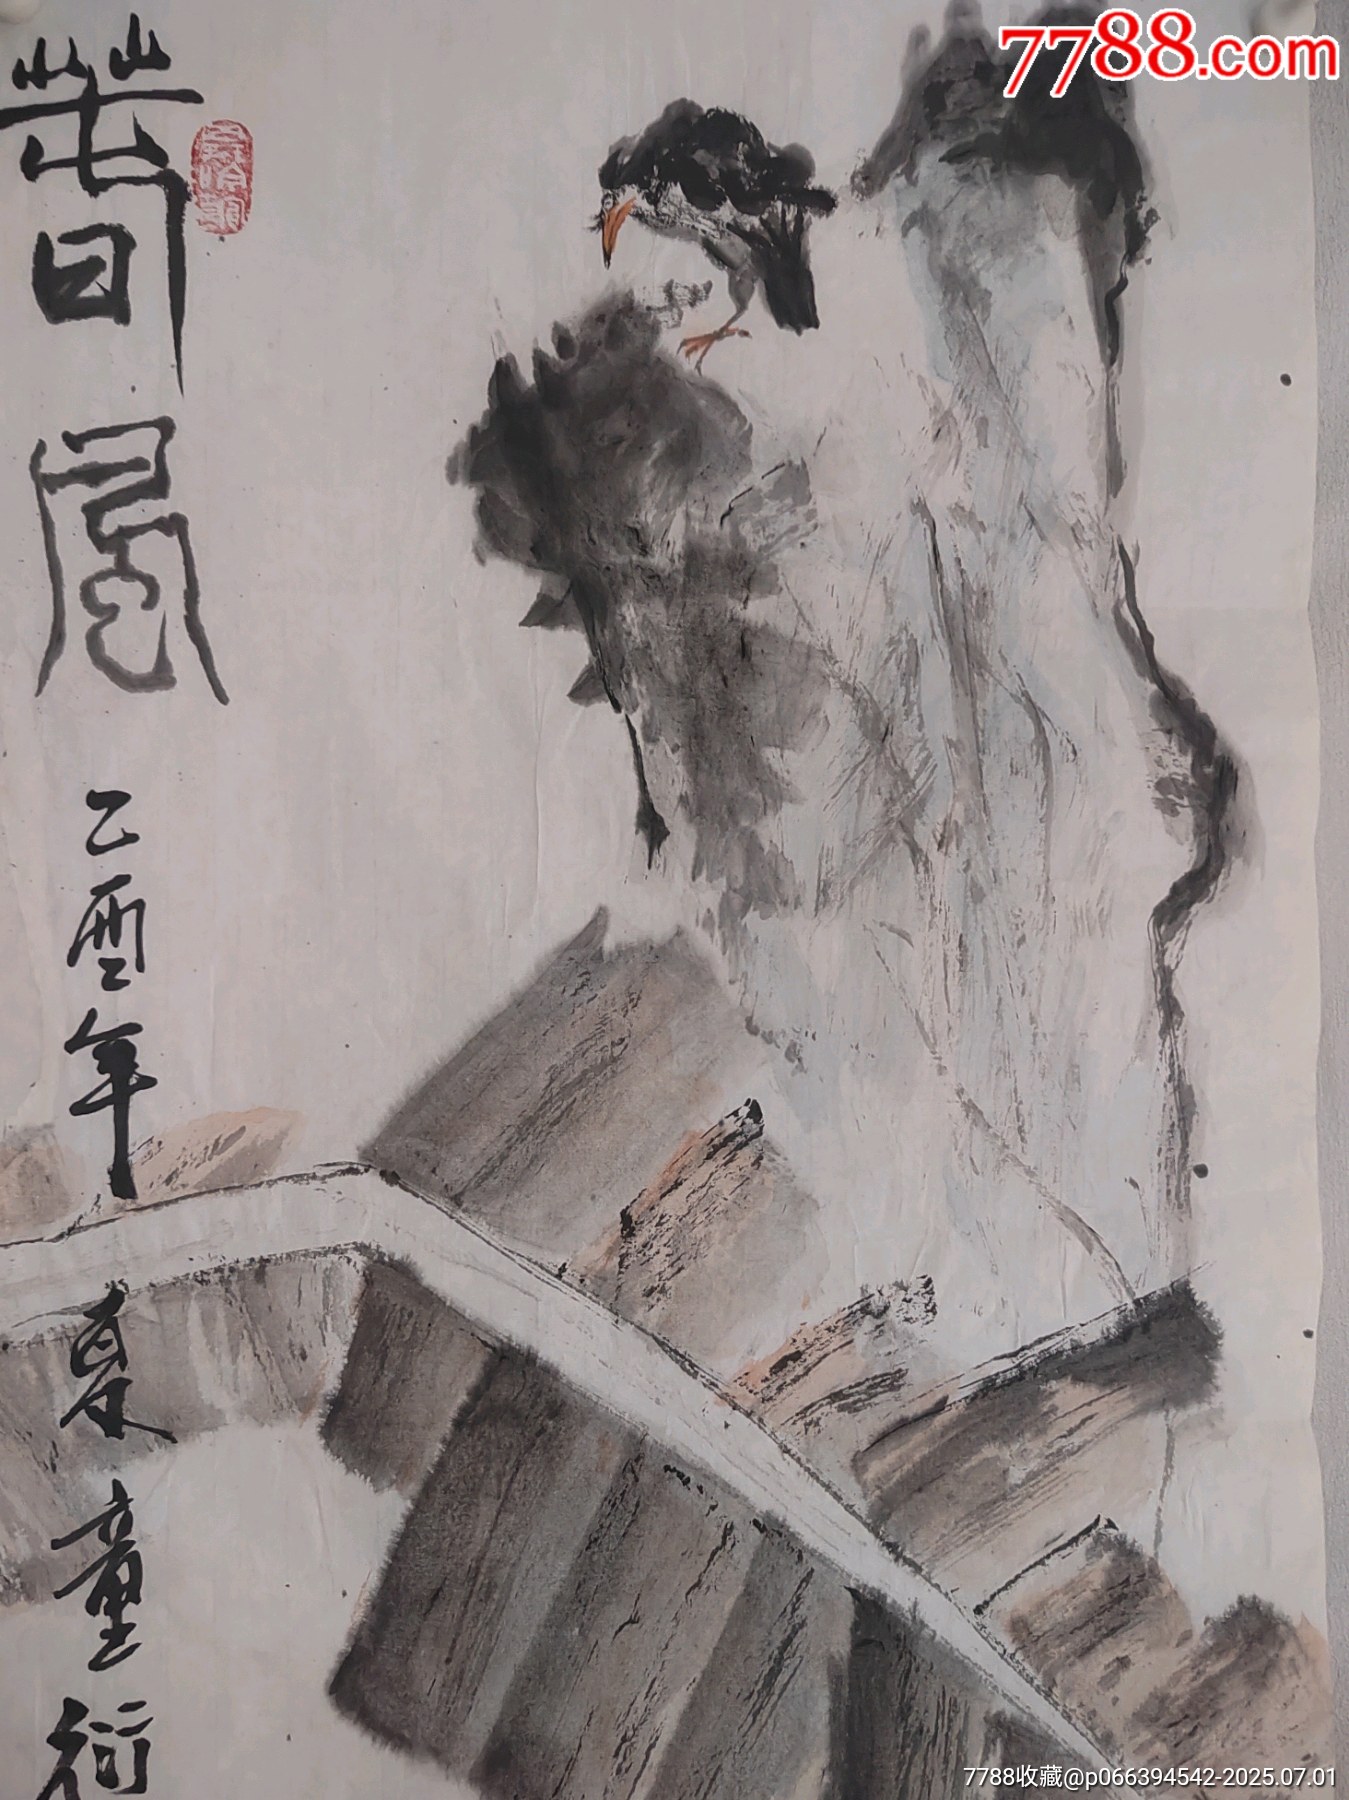 7788.com
春風
乙酉年夏童衍
7788收藏@p066394542-2025.07.01